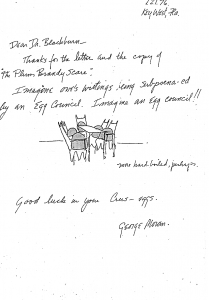 Key West, Fla.
Dear Dr. Blackburn
Thanks for the letter and the copy of
"The Plum Brandy Scare".
Imagine one's writings being subpoena-ed
by an Egg Council. Imagine an Egg Council!!
some hard-boiled, perhaps.
Good luck in your Crus-eggs.
George